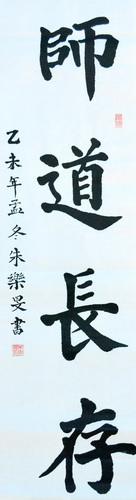 師道長存
乙未年孟冬朱樂旻書